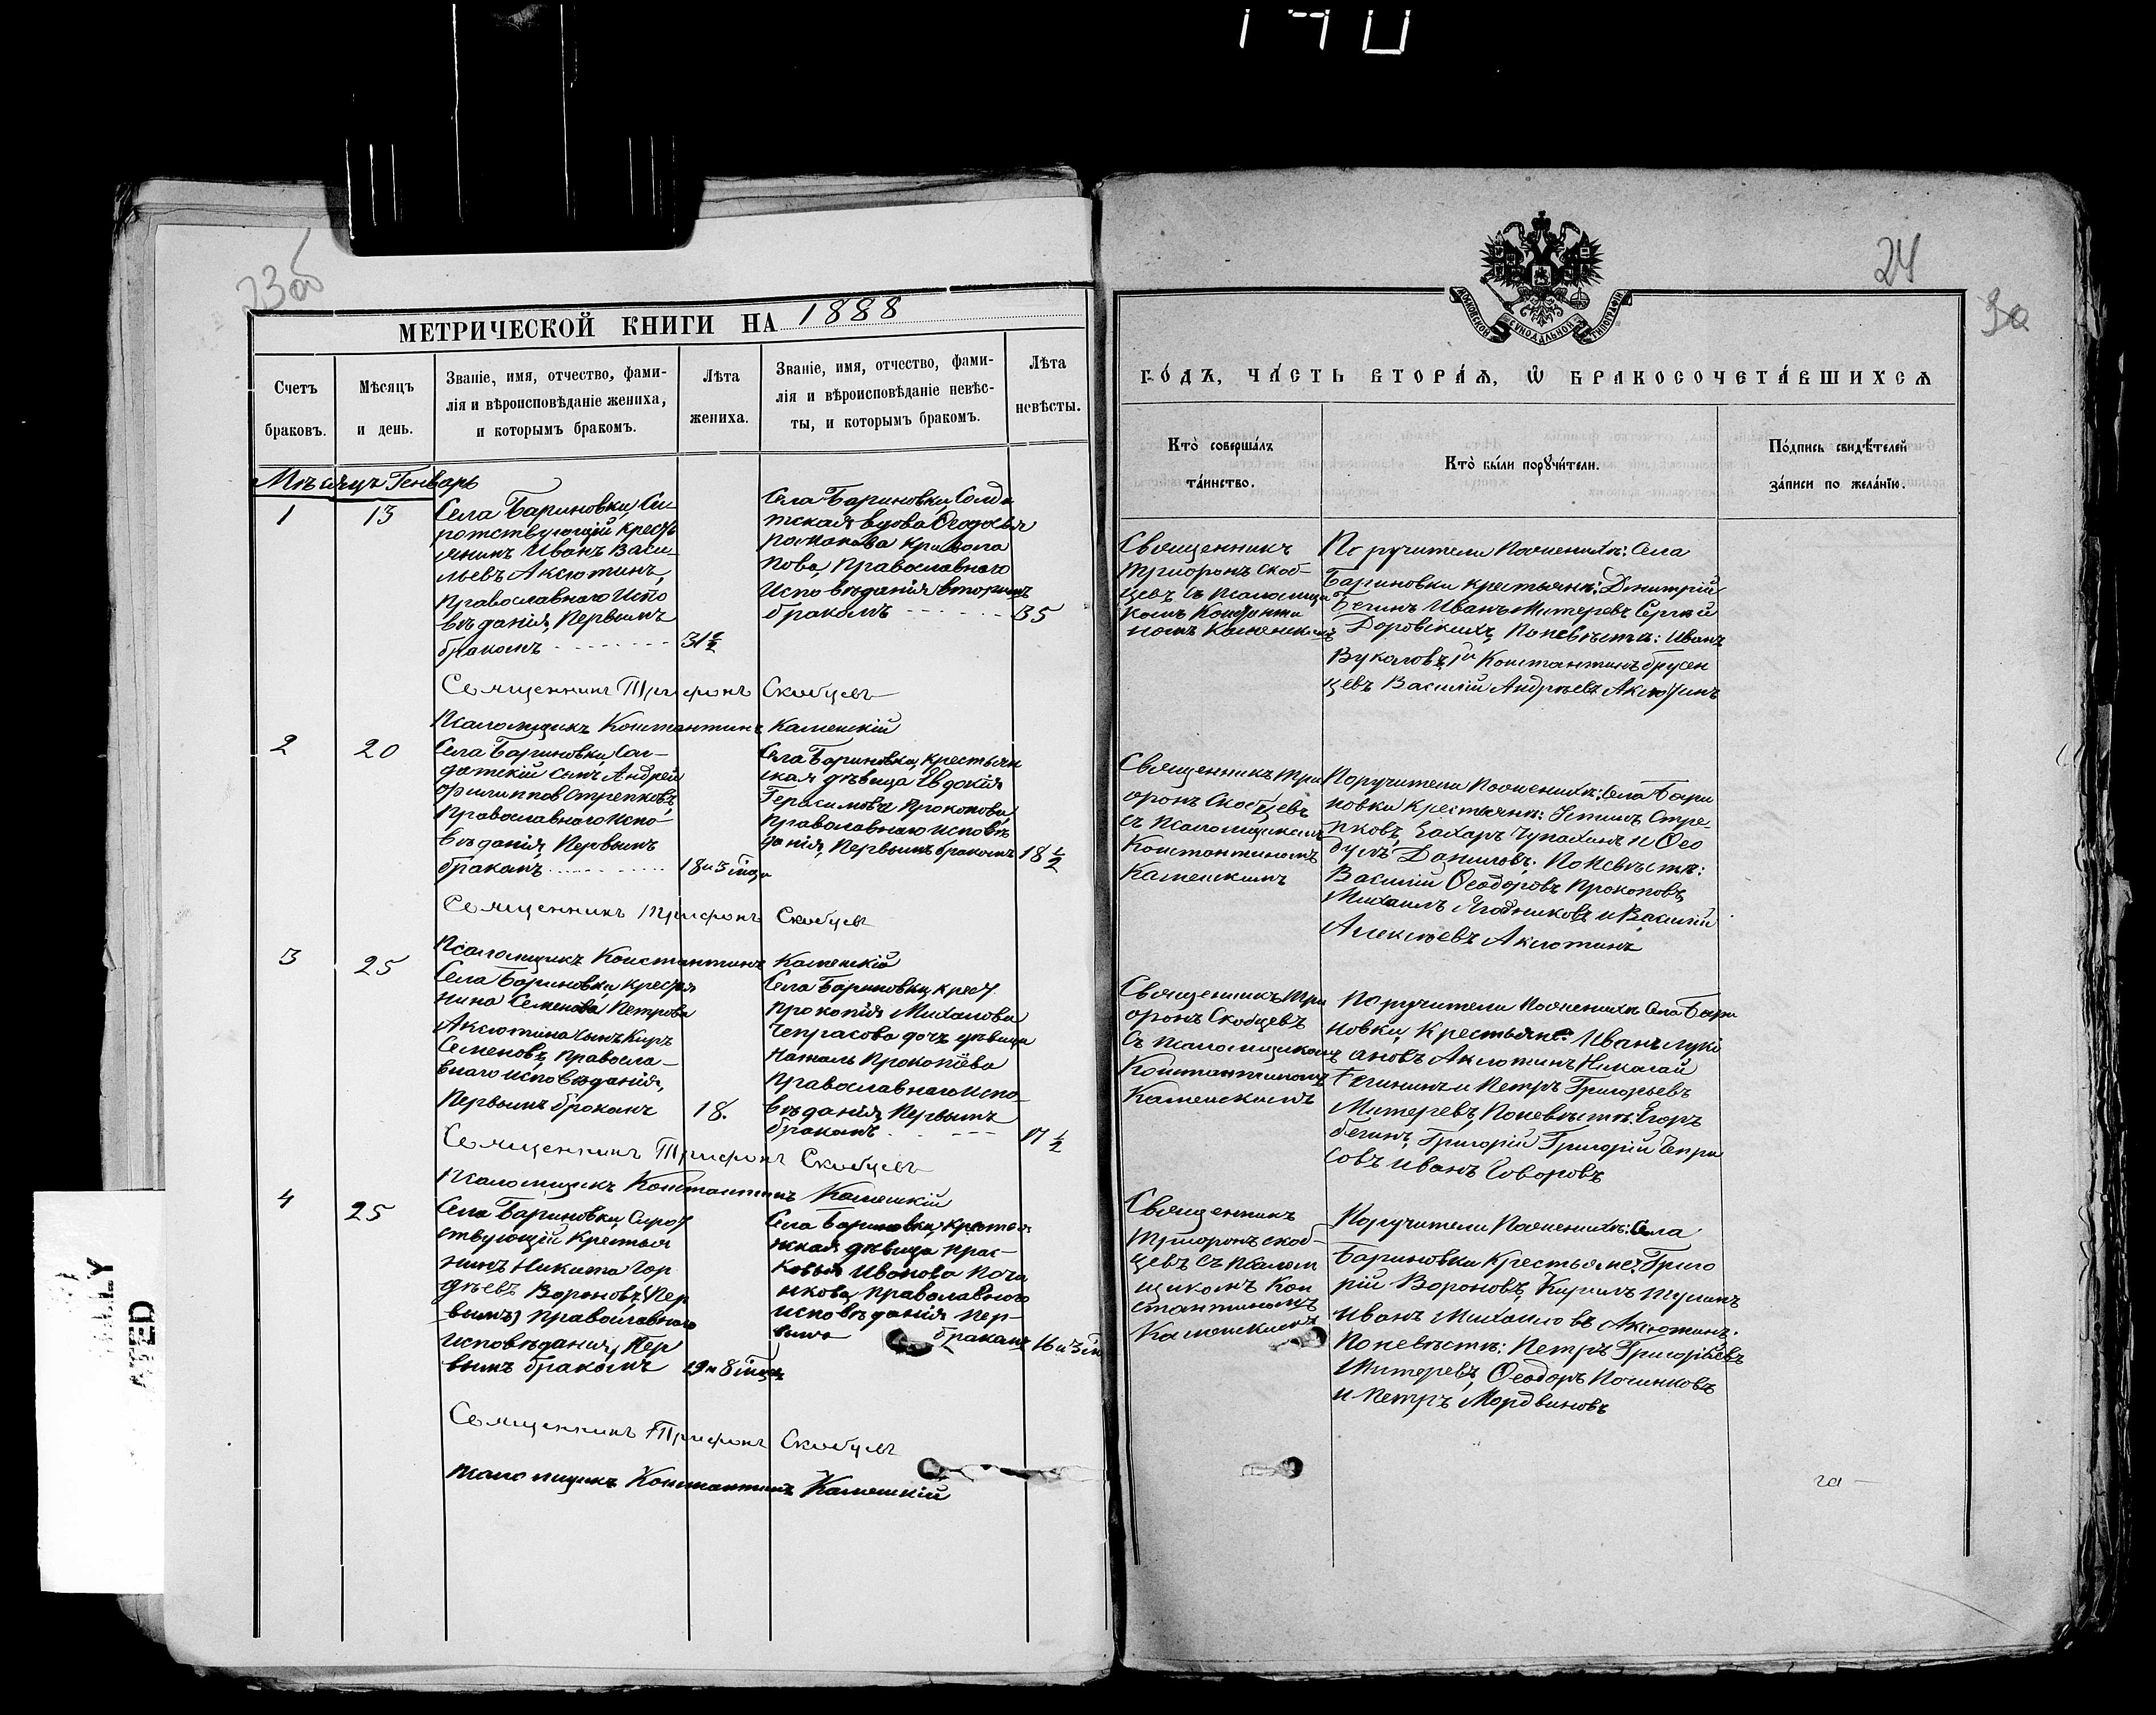 23об
МЕТРИЧЕСКОЙ КНИГИ НА 1888
Счетъ браковъ.
Мѣсяцъ и день.
Званіе, имя, отчество, фами-
лія и вѣроисповѣданіе жениха,
и которымъ бракомъ.
Лѣта жениха.
Званіе, имя, отчество, фами-
лія и вѣроисповѣданіе невѣс-
ты, и которымъ бракомъ.
Лѣта невѣсты.
Мѣсяцъ Генварь
1
13
Села Бариновки, Си-
ротствующій крестья
янинъ Иванъ Васи-
льевъ Аксютинъ,
Православнаго Испо
вѣданія, Первымъ
бракомъ
31½
Села Бариновки, Солда
тская вдова Ѳеодосья
Романова Кривола
пова, Православнаго
Исповѣданія вторымъ
бракомъ
35
Священникъ Трифонъ Скобцевъ
Псаломщикъ Константинъ Каменскій
2
20
Села Бариновки, Сол-
датскій сынъ Андрей
Филипповъ Стрепковъ,
Православнаго Испо-
вѣданія, Первымъ
бракомъ
18 и 3 мѣця
Села Бариновки, крестьян
ская дѣвица Евдокія
Герасимова Прокопова,
Православнаго исповѣ
данія, Первымъ бракомъ
18½
Священникъ Трифонъ Скобцевъ
Псаломщикъ Константинъ Каменскій
3
25
Села Бариновки крестья
нина Семенова Петрова
Аксютина сынъ Киръ
Семеновъ, Правосла-
внаго исповѣданія,
Первымъ бракомъ
18.
Села Бариновки, крест.
Прокопія Михалова
Чепрасова дочь дѣвица
Наталь Прокопіева
Православнаго Испо-
вѣданія, Первымъ
бракомъ
17½
Священникъ Трифонъ Скобцевъ
Псаломщикъ Константинъ Каменскій
4
25
Села Бариновки, Сирот
ствующій крестья
нинъ Никита Гор
дѣевъ Вороновъ, (Пер
вымъ) Православнаго
исповѣданія, Пер
вымъ бракомъ
19 и 8 мѣц
Села Бариновки, крестья
нская дѣвица Прас-
ковья Иванова Почи
нкова, православнаго
исповѣданія Пер-
вымъ бракомъ
16 и 3 м
Священникъ Трифонъ Скобцевъ
Псаломщикъ Константинъ Каменскій
24
МОСКОВСКОЙ СѴНОДАЛЬНОЙ ТИПОГРАФІИ
ГО́ДЪ, ЧА́СТЬ ВТОРА́Я, Ѡ҆ БРАКОСОЧЕТА́ВШИХСЯ
Кто̀ соверша́лъ та́инство.
Кто̀ бы́ли порꙋчи́тели.
По́дпись свидѣ́телей за́писи по жела́нїю.
Священникъ
Трифонъ Скоб-
цевъ съ Псаломщи
комъ Константи
номъ Каменскимъ
Поручители Поженихѣ: Села
Бариновки крестьяне: Димитрій
Бегинъ Иванъ Митеревъ Сергѣй
Доровскихъ, Поневѣстѣ: Иванъ
Вукаловъ, Константинъ Брусен
цевъ Василій Андреевъ Аксютинъ
Священникъ Три
фонъ Скобцевъ
съ Псаломщикомъ
Константиномъ
Каменскимъ
Поручители Поженихѣ: Села Бари
новки крестьяне: Устинъ Стре-
пковъ, Захаръ Чупахинъ и Ѳео
дулъ Даниловъ: Поневѣстѣ:
Василій Ѳеодоровъ Прокоповъ,
Михаилъ Ягодниковъ и Василій
Алексѣевъ Аксютинъ
Священникъ Три
фонъ Скобцевъ
съ Псаломщикомъ
Константиномъ
Каменскимъ
Поручители Поженихѣ Села Бари
новки, Крестьяне: Иванъ Лукі
ановъ Аксютинъ Николай
Бегининъ и Петръ Григорьевъ
Митеревъ, Поневѣстѣ: Егоръ
Бегинъ, Григорій Григорій Чепра
совъ Иванъ Говоровъ
Священникъ
Трифонъ Скоб-
цевъ съ Псалом
щикомъ Кон
стантиномъ
Каменскимъ
Поручители Поженихѣ: Села
Бариновки Крестьяне: Григо
рій Вороновъ, Кирилъ Тулинъ
Иванъ Михаиловъ Аксютинъ:
Поневѣстѣ: Петръ Григорьевъ
Митеревъ, Ѳеодоръ Починковъ
и Петръ Мордвиновъ